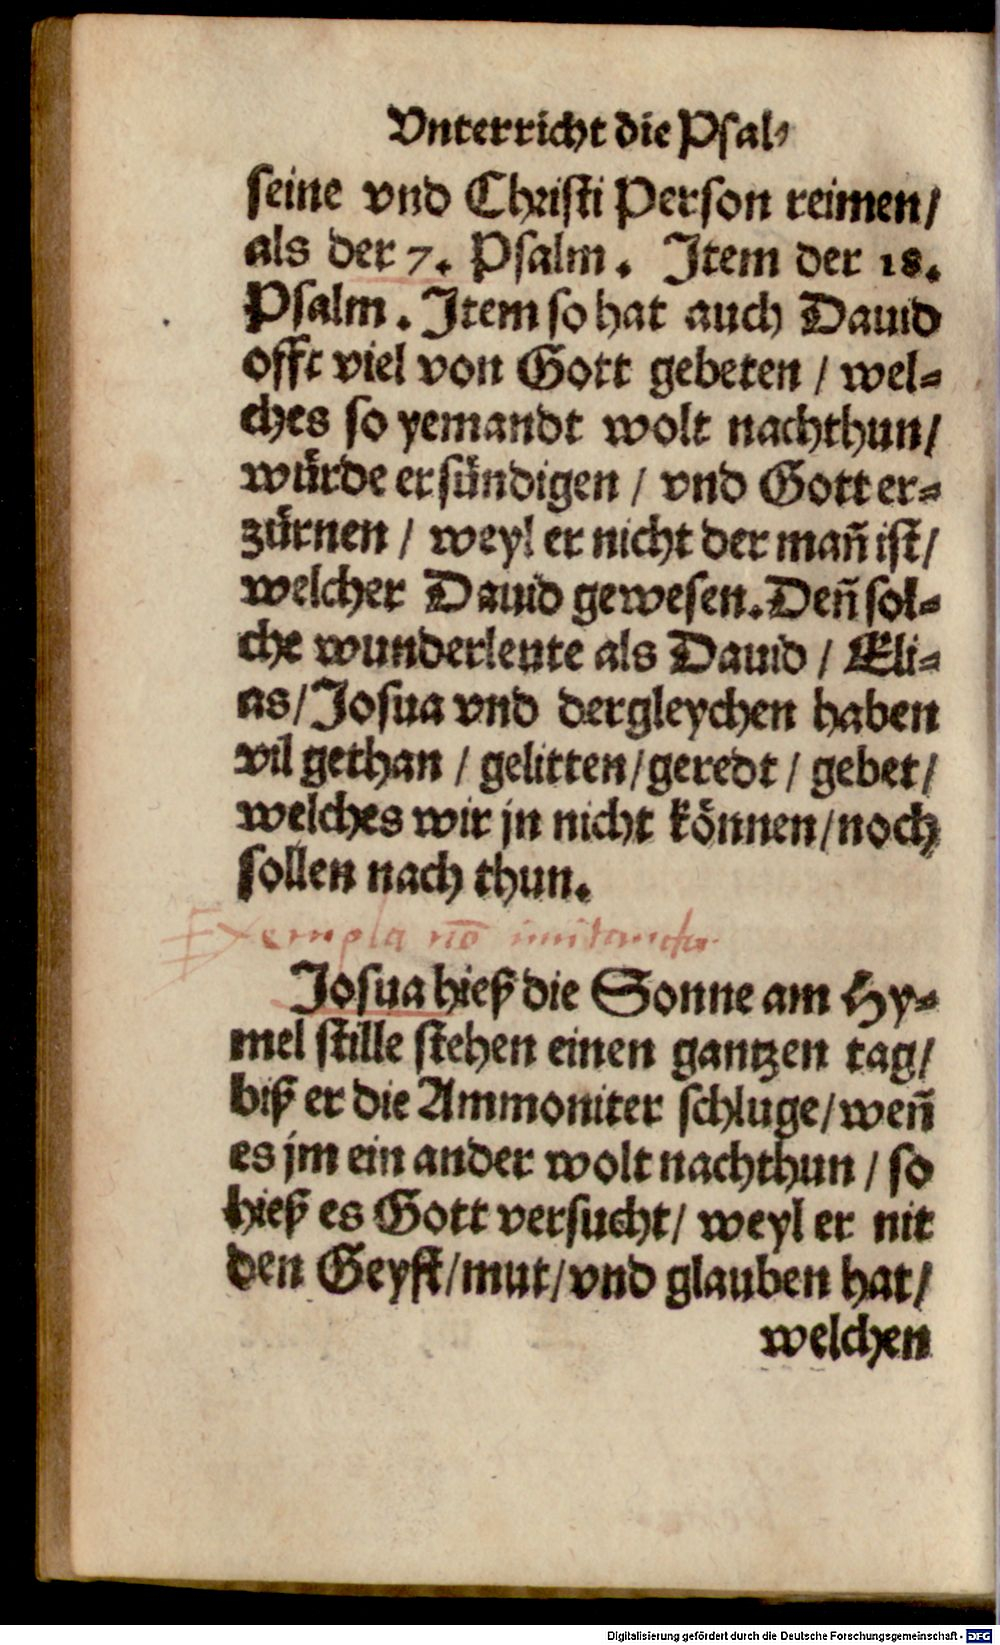 Vnterricht die Psal-
seine vnd Christi Person reimen/
als der 7. Psalm. Item der 18.
Psalm. Item so hat auch Dauid
offt viel von Gott gebeten / wel-
ches so yemandt wolt nachthun/
würde er sündigen / vnd Gott er-
zürnen / weyl er nicht der mañ ist/
welcher Dauid gewesen. Deñ sol-
che wunderleute als Dauid / Eli-
as/ Josua vnd dergleychen haben
vil gethan / gelitten/ geredt / gebet/
welches wir jn nicht können/noch
sollen nach thun.
Exempla nō imitanda.
Josua hieß die Sonne am Hy-
mel stille stehen einen gantzen tag/
biß er die Ammoniter schluge/ weñ
es jm ein ander wolt nachthun / so
hieß es Gott versucht/ weyl er nit
den Geyst/mut/vnd glauben hat/
welchen
Digitalisierung gefördert durch die Deutsche Forschungsgemeinschaft - DFG